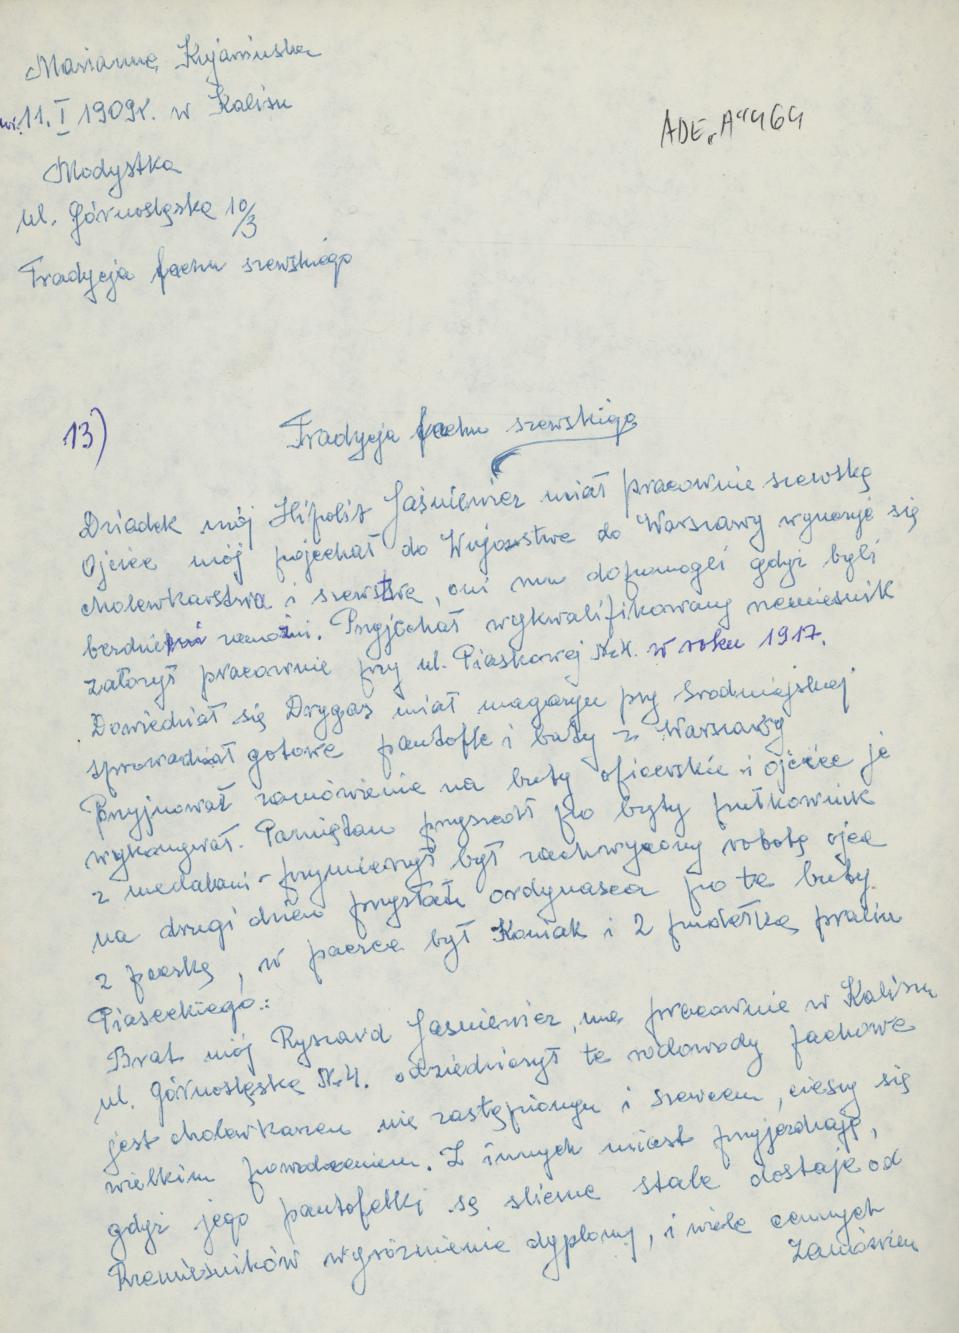 Marianna Kujawińska
ur. 11. I 1909r. w Kaliszu
ADE „A" 464
Modystka
ul. Górnośląska 10/3
Tradycja fachu szewskiego
13)
Tradycja fachu szewskiego
Dziadek mój Hipolit Jaśniewicz miał pracownie szewską
Ojciec mój pojechał do Wujostwa do Warszawy wyuczyć się
cholewkarstwa i szewstwa, oni mu dopomogli gdyż byli
bezdzietni zamożni. Przyjechał wykwalifikowany rzemieślnik
założył pracownie przy ul. Piaskowej Nr 4. w roku 1917.
Dowiedział się Drygas miał magazyn przy Śródmiejskiej
sprowadzał gotowe pantofle i buty z Warszawy
Przyjmował zamówienie na buty oficerskie i ojciec je
wykonywał. Pamiętam przyszedł po byty pułkownik
z medalami - przymierzył był zachwycony robotą ojca
na drugi dzień przysłał ordynansa po te buty
z paczką, w paczce był Koniak i 2 pudełka pralin
Piaseckiego.:
Brat mój Ryszard Jaśniewicz, ma pracownie w Kaliszu
ul. Górnośląska Nr 4. odziedziczył te rodowody fachowe
jest cholewkarzem nie zastąpionym i szewcem, cieszy się
wielkim powodzeniem. Z innych miast przyjeżdżają,
gdyż jego pantofelki są śliczne stale dostaje od
Rzemieślników wyróżnienie dyplomy, i wiele cennych
zamówien